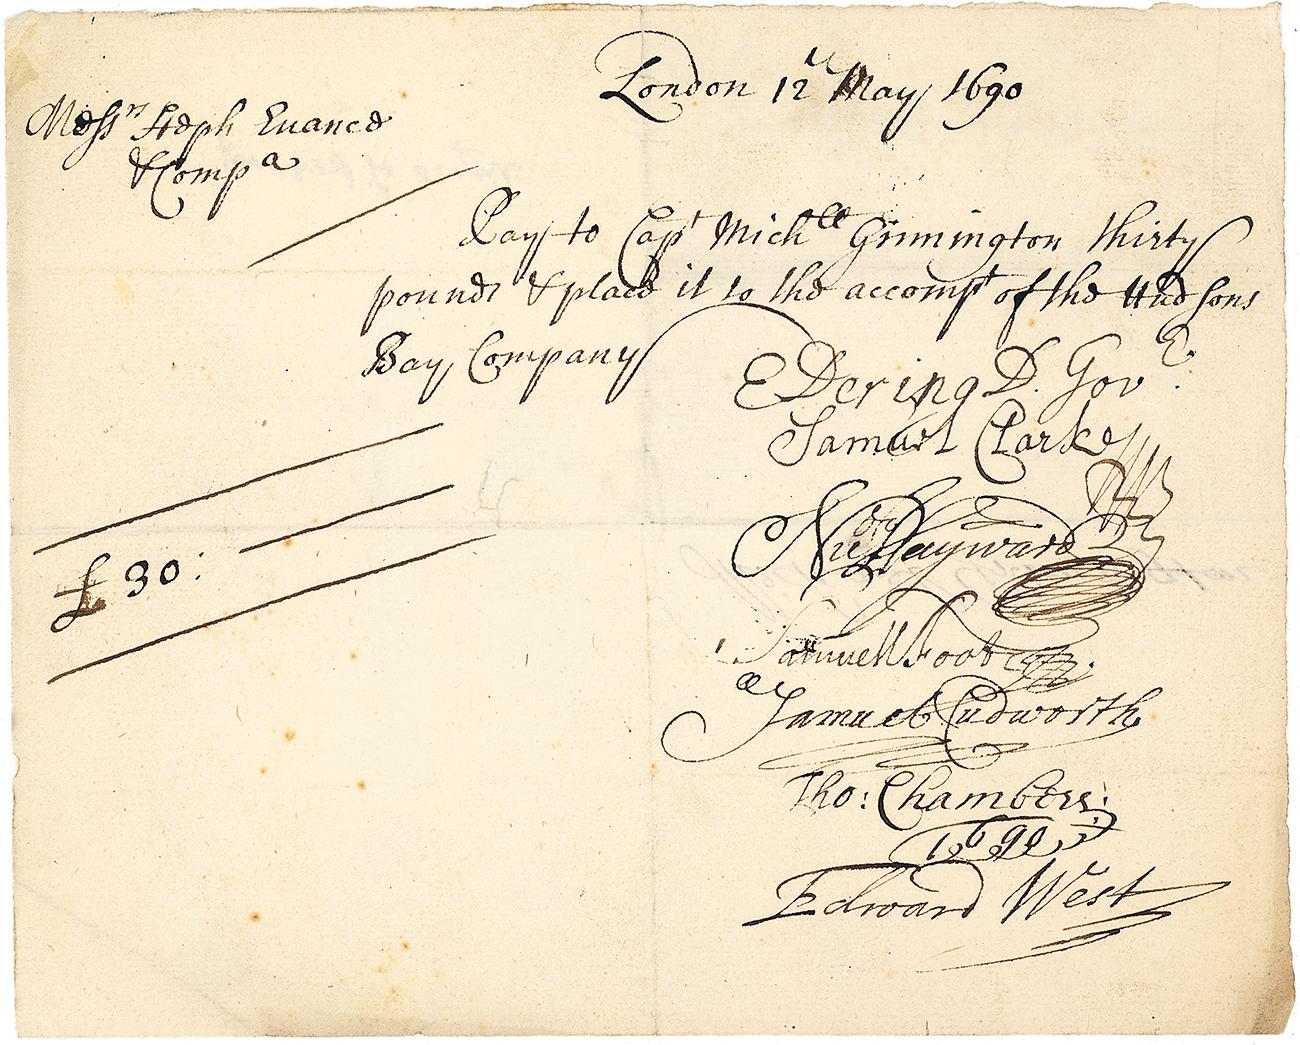 London 12 May 1690
Messrs Steph Evance
& Compa
Pay to Capt Michll Grinnington thirty
pounds & place it to the accompt of the Hudsons
Bay Company
E Dering D. Govr.
Samuel Clarke
Nich Hayward
Samuell Foot
Samuel Cudworth
£ 30:
Tho: Chambers:
1690
Edward West